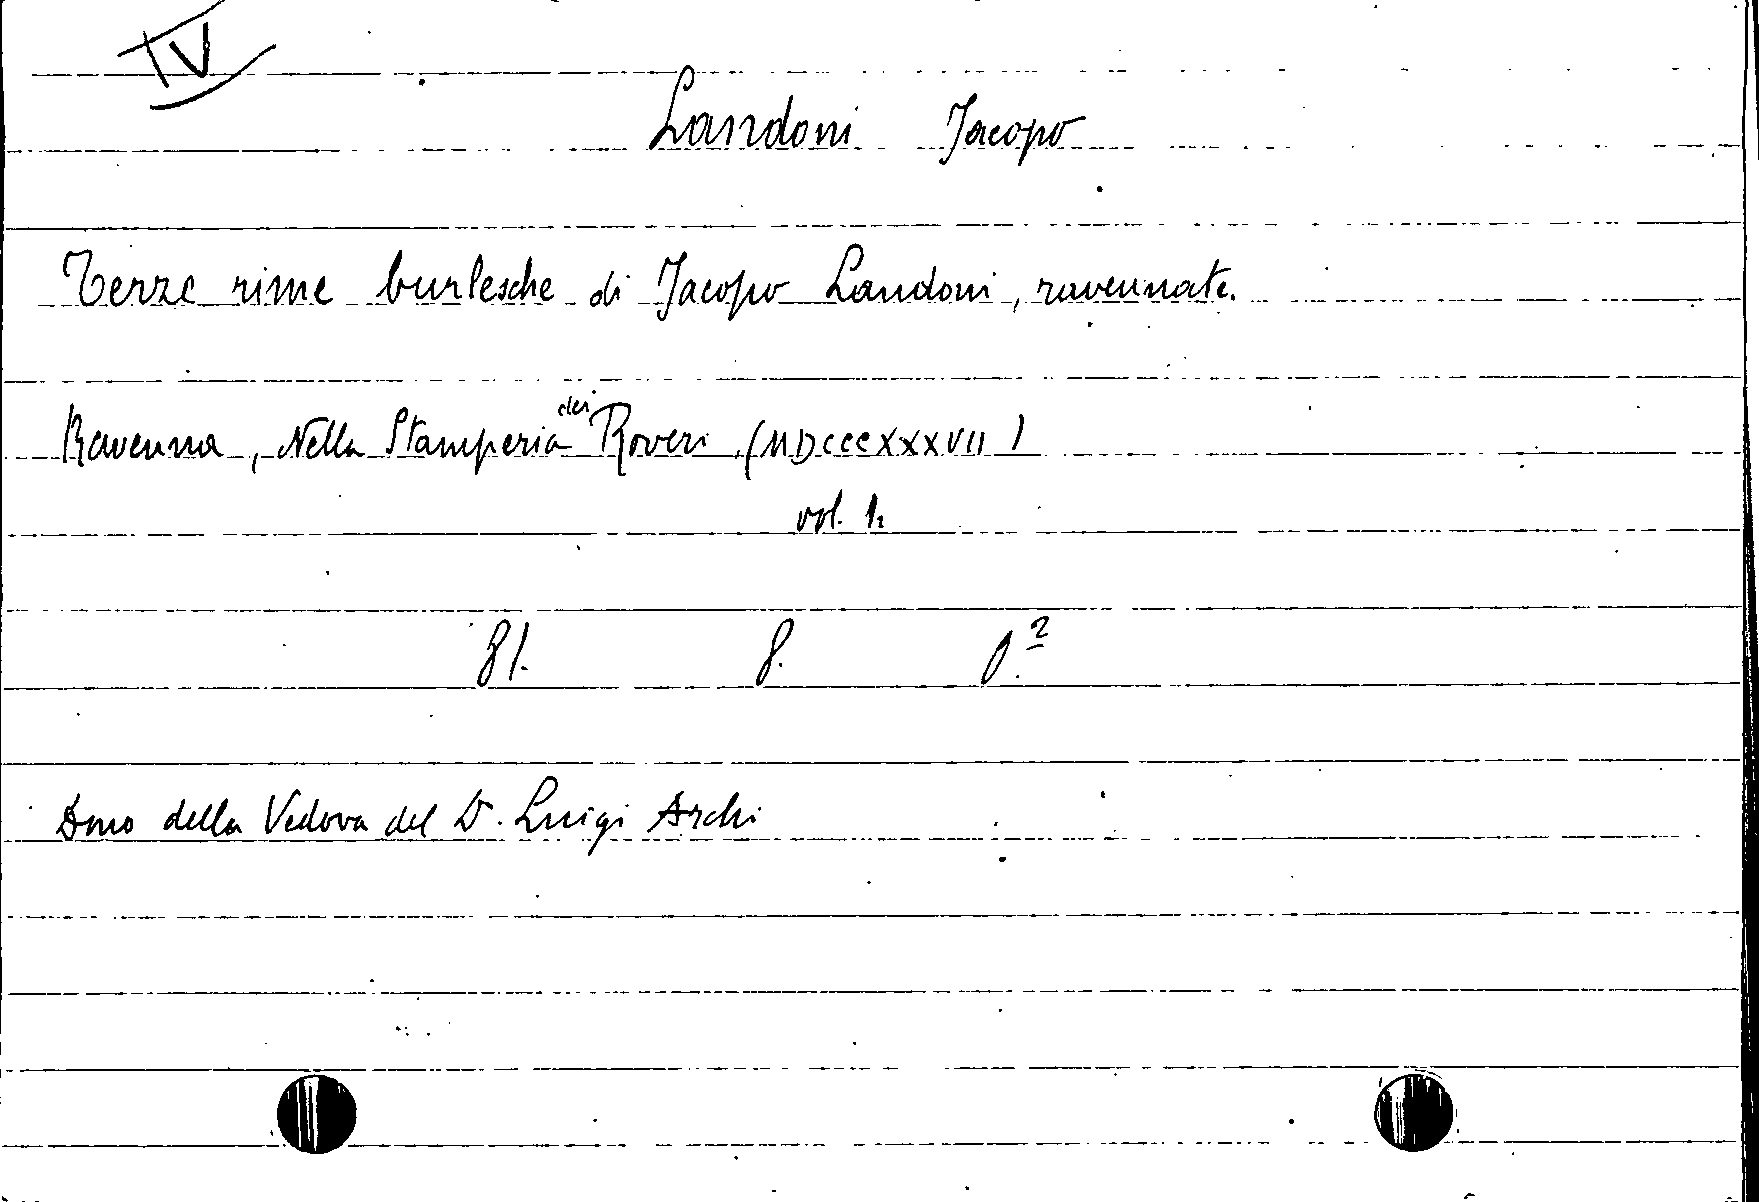 IV
Landoni Jacopo
Terze rime burlesche di Jacopo Landoni, ravennate.
Ravenna, Nella Stamperia dei Roveri, (MDCCCXXXVII)
vol. 1.
81. 8.
Dono della Vedova del D. Luigi Archi